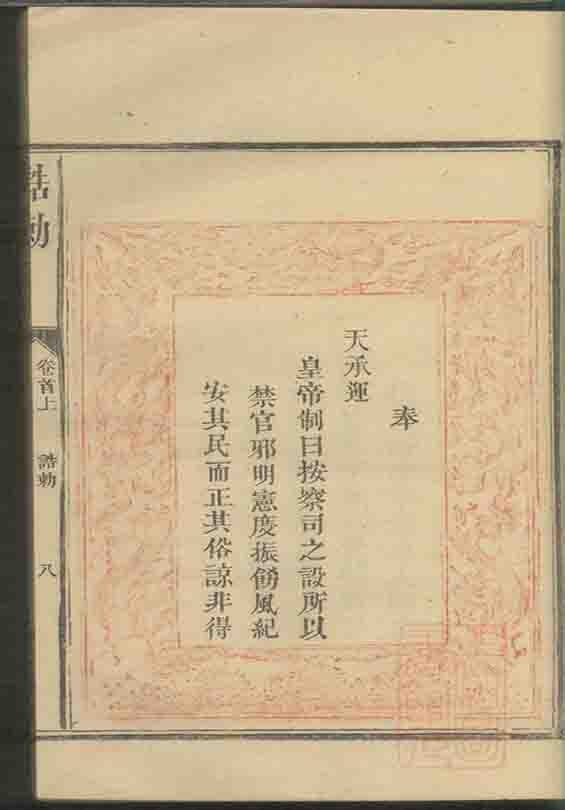 奉
天承運
皇帝制曰按察司之設所以
禁官邪明憲度振飭風紀
安其民而正其俗諒非得
誥勅
卷首上
誥勅
八